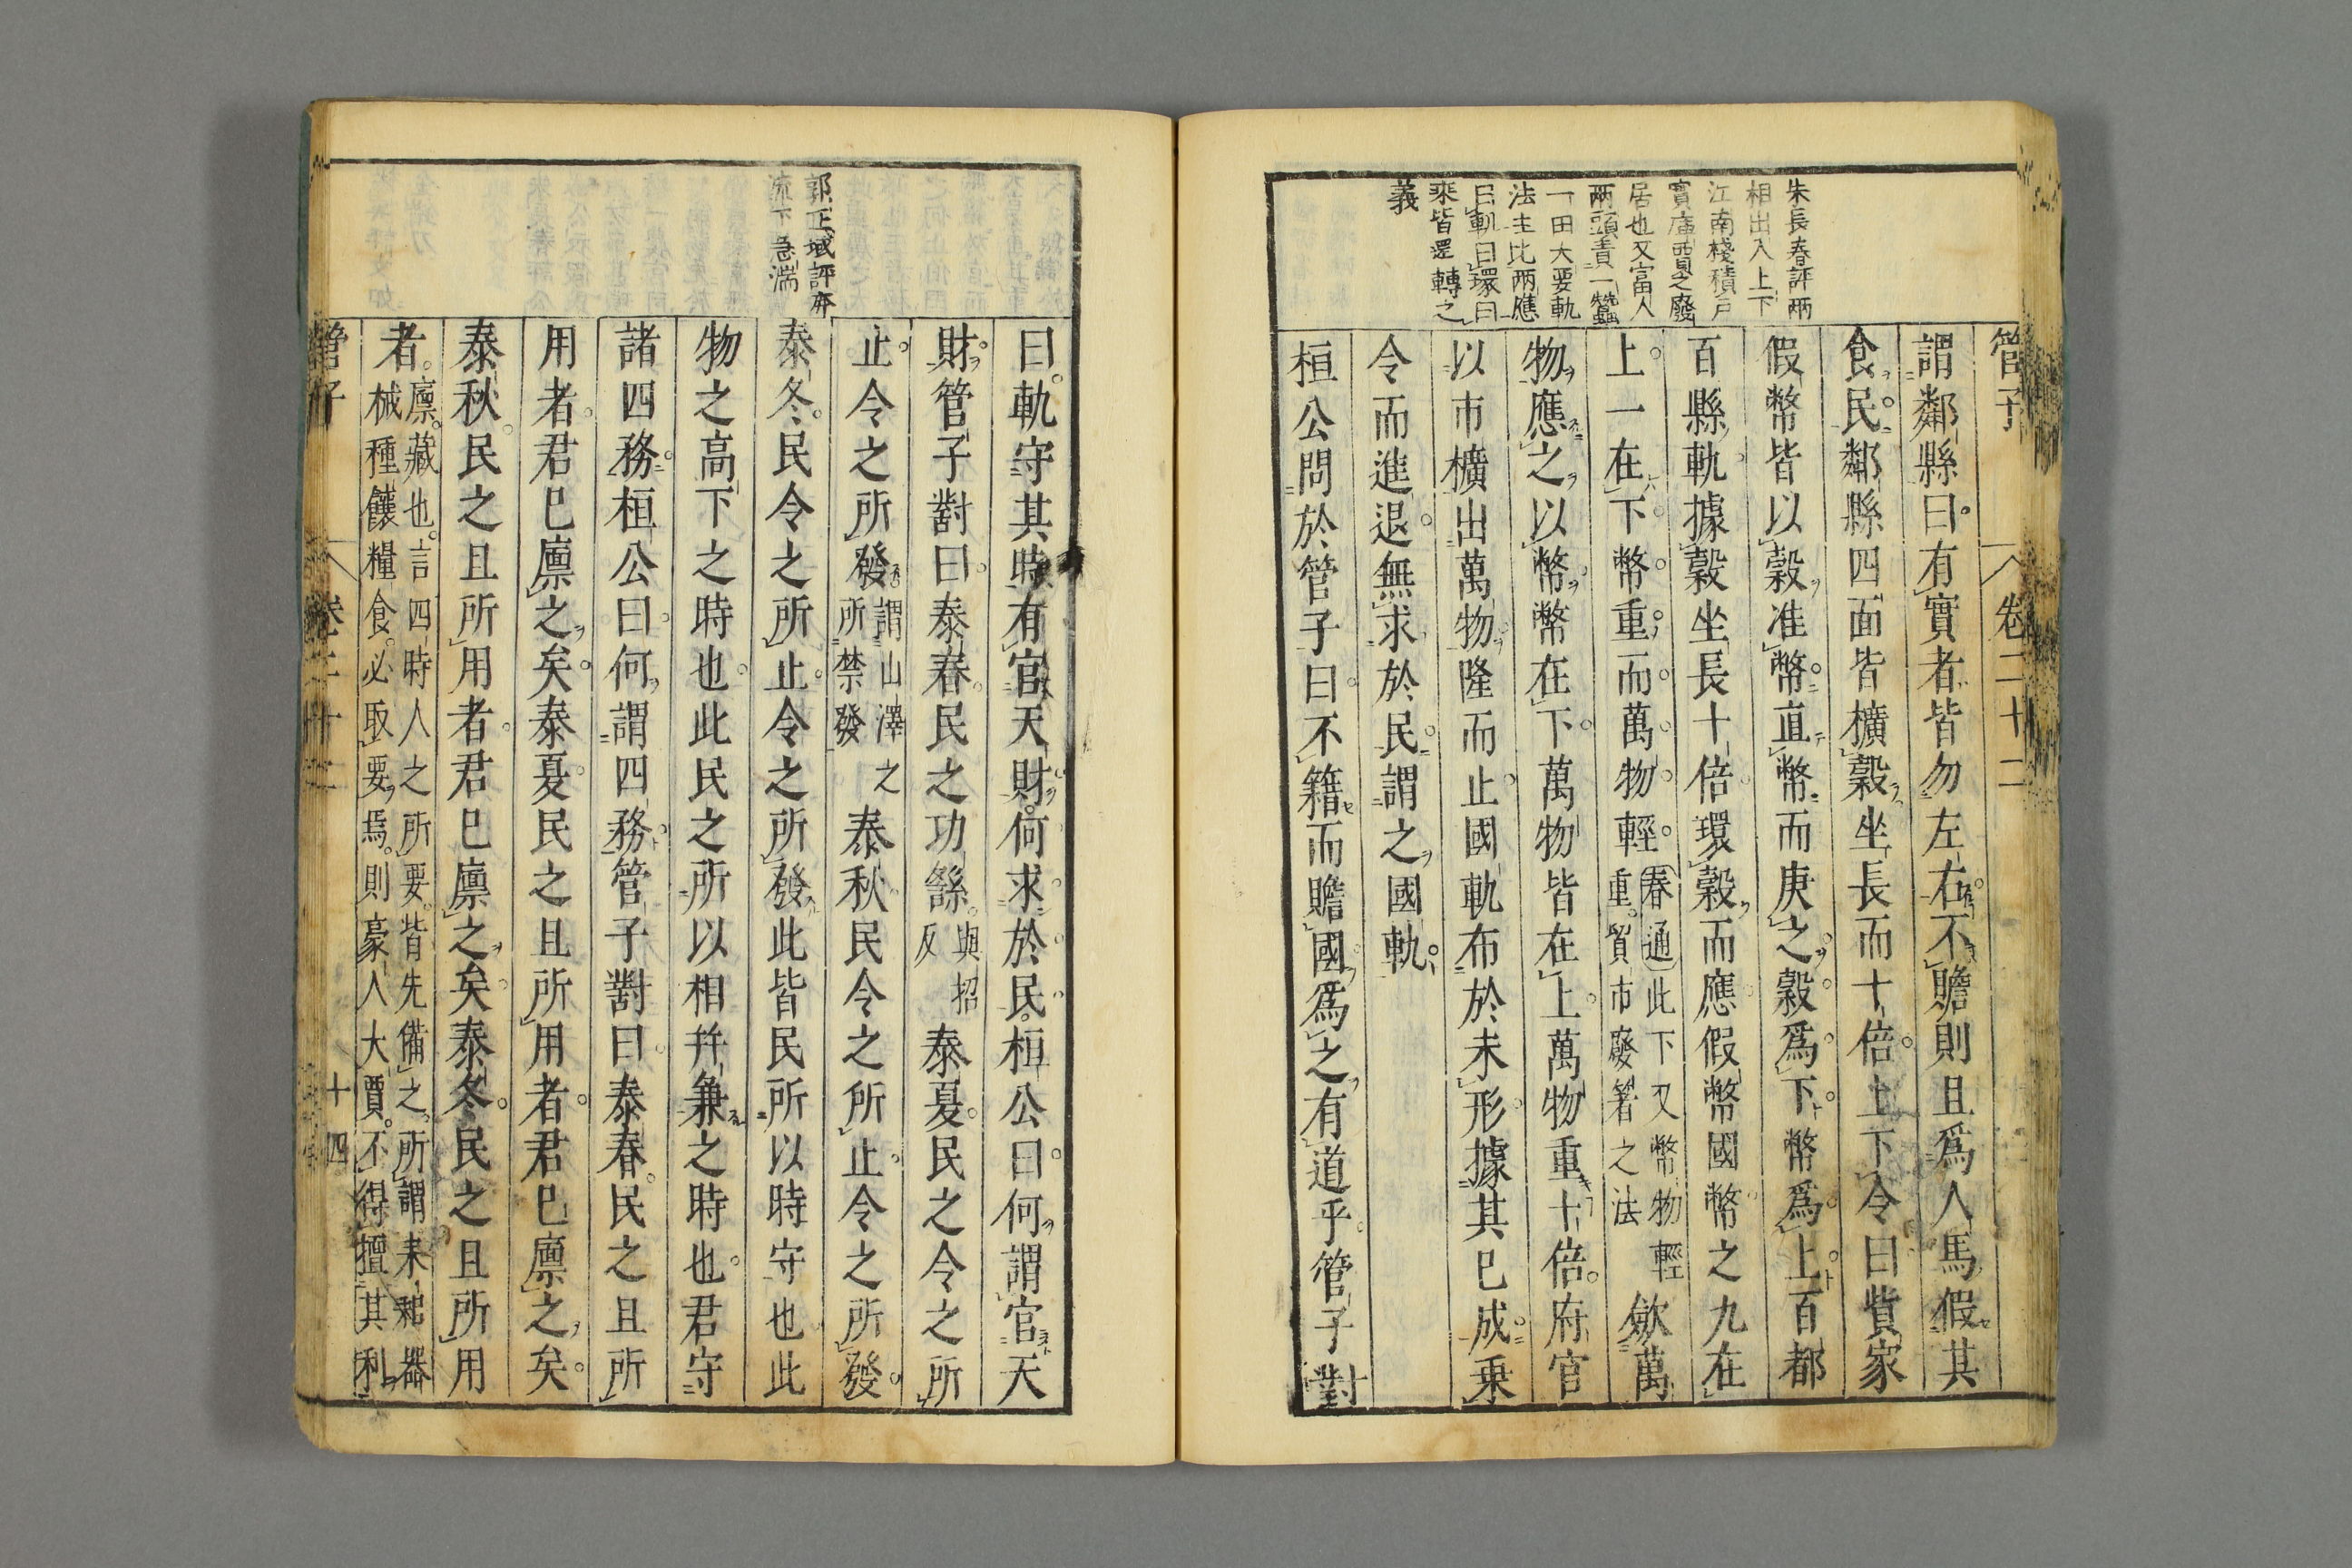 管子
卷二十二
朱長春評兩
相出入上下
江南棧積戶
實廣賈之廢
居也又富人
兩頭責一蠶
一田大要軌
法主比兩應
曰軌曰環曰
乘皆還轉之
義
謂鄰縣曰有實者皆勿左右不贍則且爲人馬假其
食民鄰縣四面皆櫎穀坐長而十倍上下令曰貲家
假幣皆以穀准幣直幣而庚之穀爲下幣爲上百都
百縣軌據穀坐長十倍環穀而應假幣國幣之九在
上一在下幣重而萬物輕
春通此下又幣物輕
重貿市廢著之法
歛萬
物應之以幣幣在下萬物皆在上萬物重十倍府官
以市櫎出萬物隆而止國軌布於未形據其巳成乗
令而進退無求於民謂之國軌
桓公問於管子曰不籍而贍國爲之有道乎管子對
郭正域評亦
急湍
曰軌守其時有官天財何求於民桓公曰何謂官天
財管子對曰泰春民之功繇
與招
反
泰夏民之令之所
止令之所發
謂山澤之
所禁發
泰秋民令之所止令之所發
泰冬民令之所止令之所發此皆民所以時守也此
物之高下之時也此民之所以相幷兼之時也君守
諸四務桓公曰何謂四務管子對曰泰春民之且所
用者君巳廪之矣泰夏民之且所用者君巳廪之矣
泰秋民之且所用者君巳廪之矣泰冬民之且所用
者
廪藏也言四時人之所要皆先備之所謂耒耜器
械種饟糧食必取要焉則豪人大賈不得擅其利
管子
卷二十二
十四